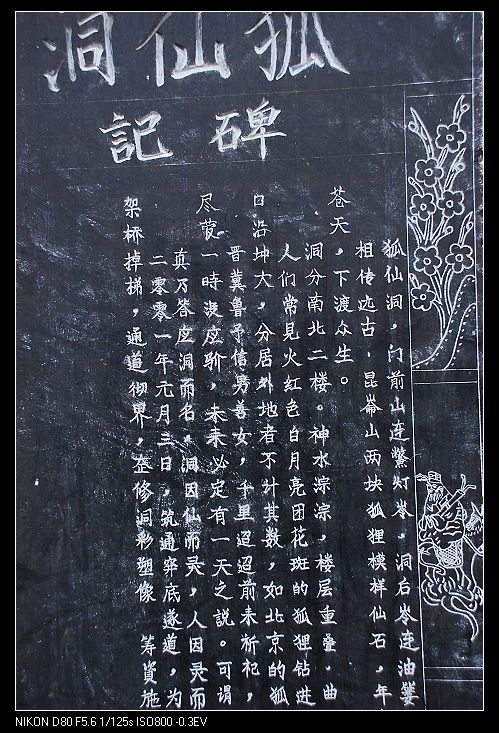 狐仙洞
碑記
狐仙洞，门前山连鳖灯岺，洞后岺连油篓
相传远古，昆崙山两块狐狸模样仙石，年
苍天，下渡众生。
洞分南北二楼。神水淙淙，楼层重叠，曲
人们常見火红色白月亮团花斑的狐狸钻进
口沿坤大，分居外地者不计其数，如北京的狐
晋冀鲁予信男善女，千里迢迢前来祈祀，
尽蒙一時没应驗，未来必定有一天之説。可谓
真乃答应洞而名，洞因仙而灵，人因灵而
二零零一年元月三日，筑通窄底遂道，为
架桥掉梯，通道彻界，修洞彩塑像 筹資施
NIKON D80 F5.6 1/125s ISO800 -0.3EV